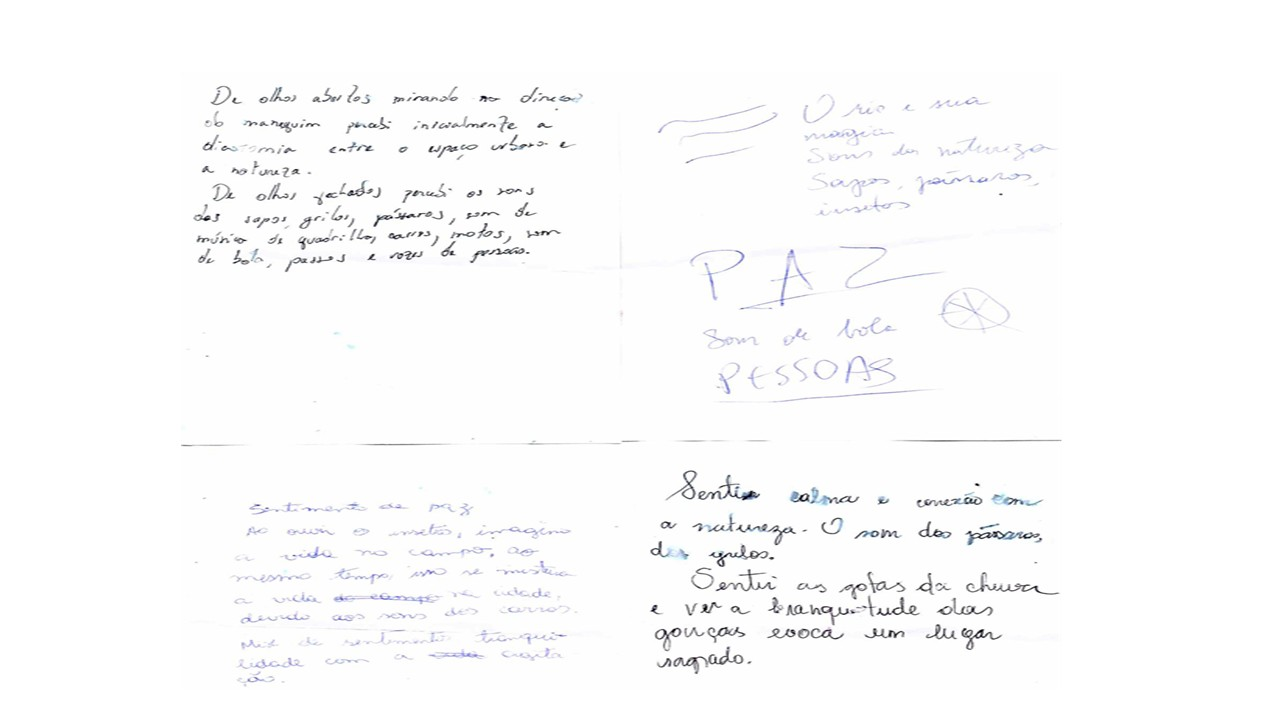 De olhos abertos mirando na direção
do manequim percebi inicialmente a
entre o espaço urbano e
a natureza.
De olhos fechados percebi os sons
dos sapos, grilos, pássaros, som de
música de quadrilha, carros, motos, som
de bola, passos e vozes de pessoas.
O rio e sua
magia
Sons da natureza
Sapos, pássaros,
insetos
PAZ
Som de bola
PESSOAS
Sentimento de paz
Ao ouvir os insetos, imagino
a vida no campo, ao
mesmo tempo, se mistura
a vida na cidade,
devido aos sons dos carros.
Mix de sentimento tranqui-
lidade com a agita
ção.
Sentir calma e conexão com
a natureza. O som dos pássaros,
dos grilos.
Sentir as gotas da chuva
e ver a branquitude das
garças evoca um lugar
sagrado.